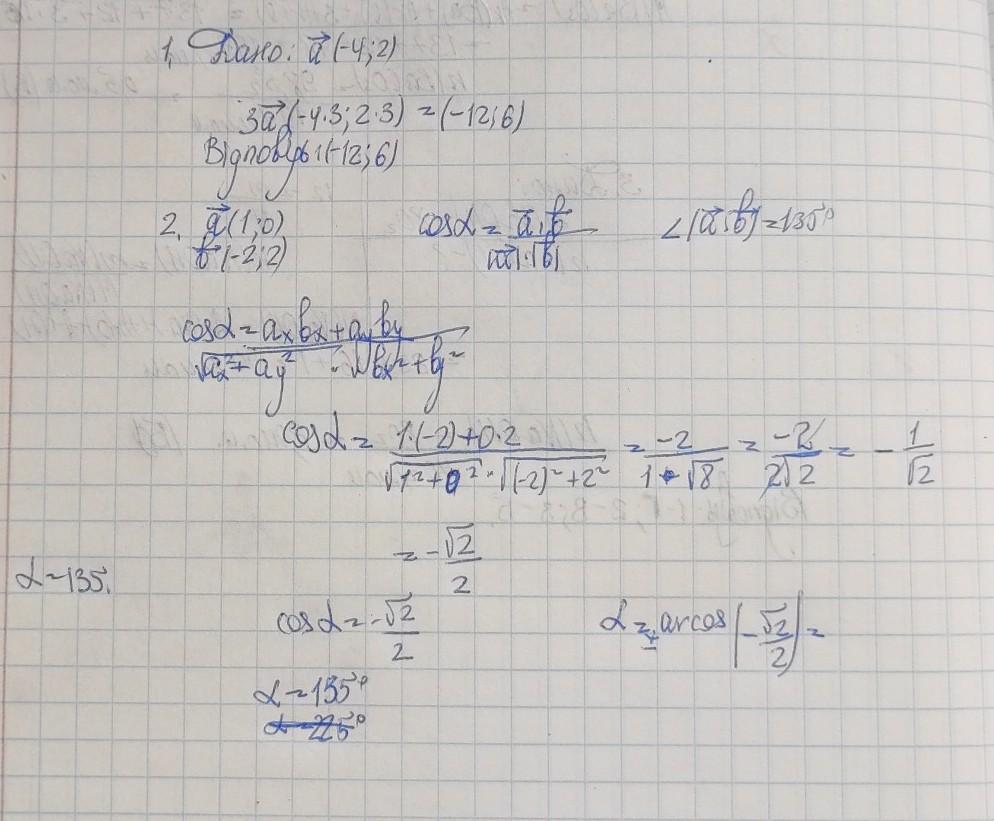 1. Дано: a⃗ (-4;2)
3a⃗ (-4·3; 2·3) = (-12;6)
Відповідь: (-12;6)
2. a⃗ (1;0)
b⃗ (-2;2)
cosα = a⃗·b⃗ / |a⃗|·|b⃗|
∠(a⃗;b⃗) = 135°
cosα = axbx + ayby / √ax² + ay² · √bx² + by²
cosα = 1·(-2)+0·2 / √1²+0² · √(-2)²+2² = -2 / 1·√8 = -2 / 2√2 = - 1/√2
= - √2/2
α = 135.
cosα = - √2/2
α = ± arcos (- √2/2) =
α = 135°
α = 225°